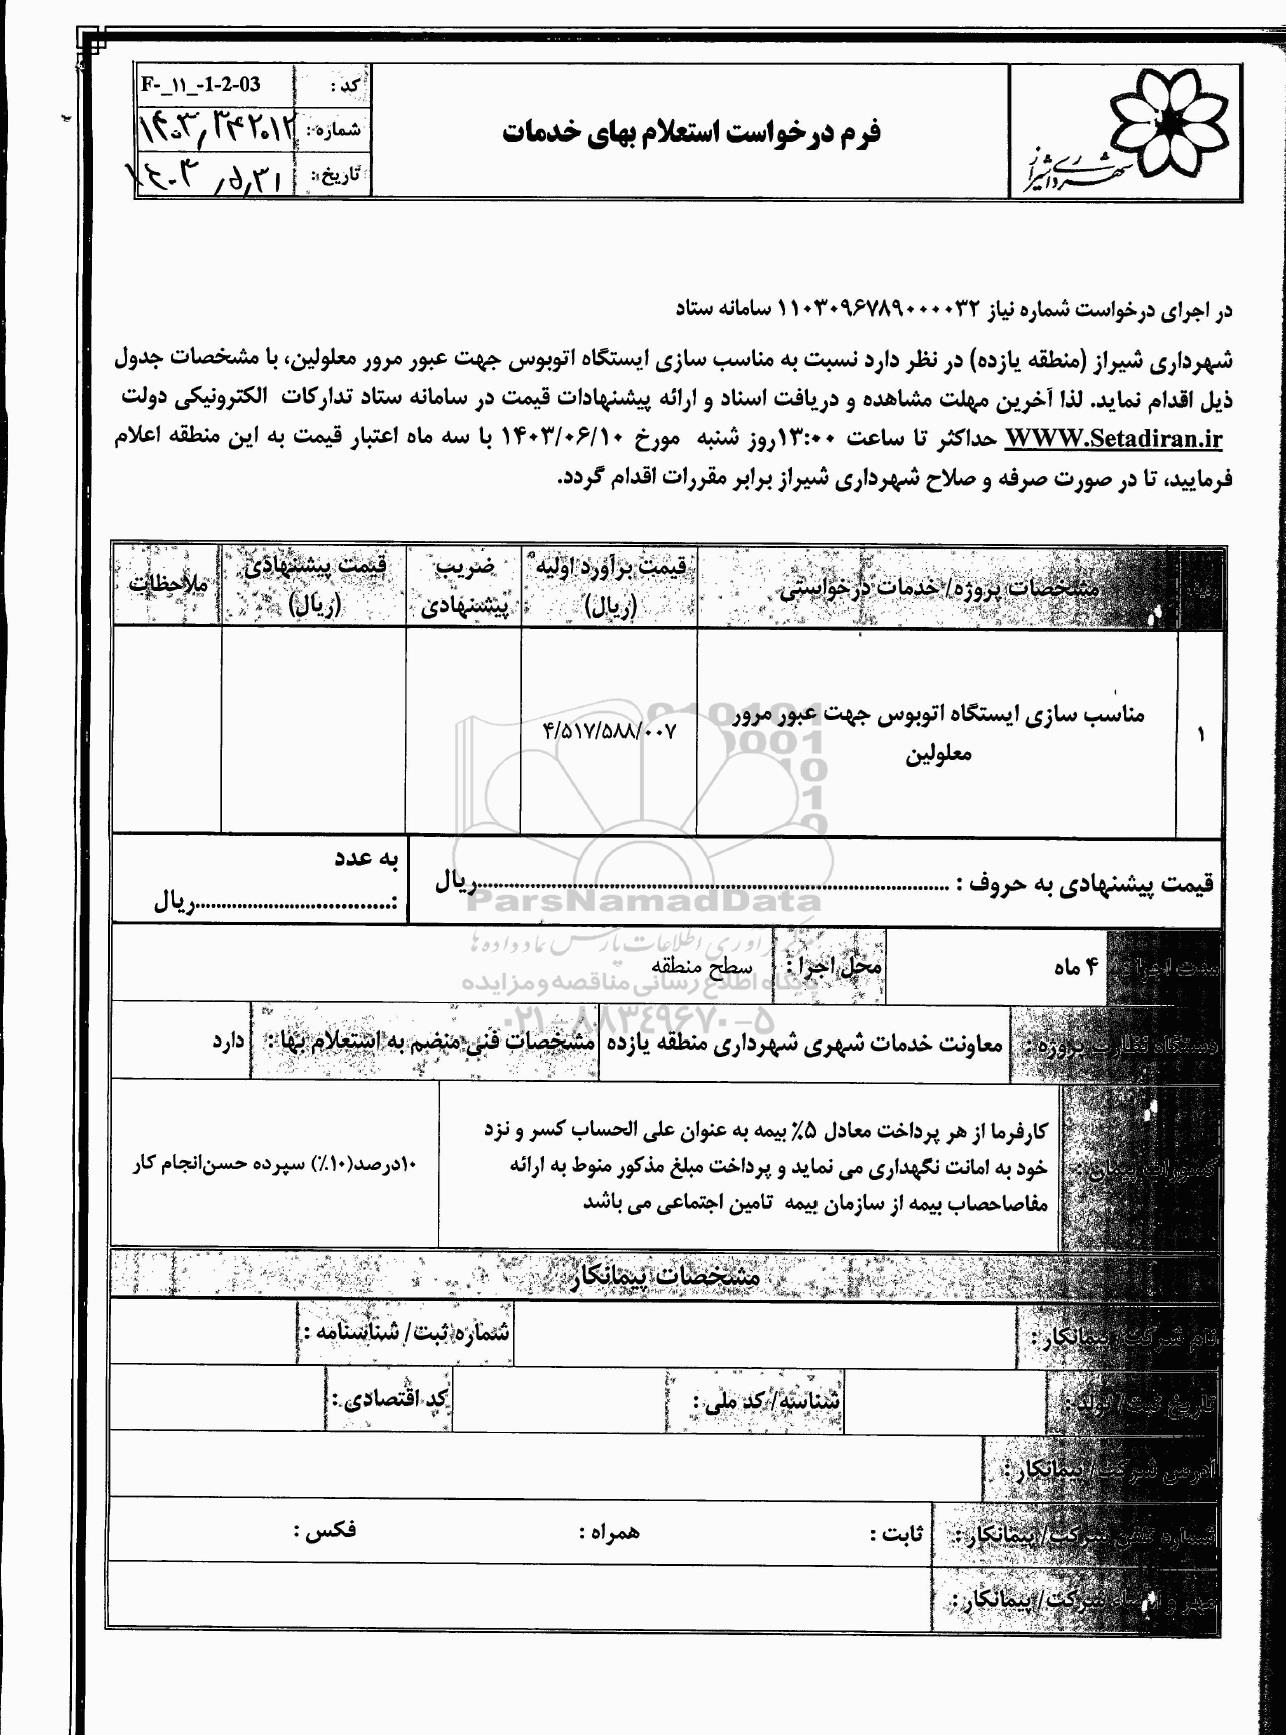 شهرداری شیراز
فرم درخواست استعلام بهای خدمات
کد : F-_۱۱_-1-2-03
شماره : ۱۴۰۳٫۳۴۲۰۱۲
تاریخ : ۱۴۰۳٫۵٫۳۱
در اجرای درخواست شماره نیاز ۱۱۰۳۰۹۶۷۸۹۰۰۰۰۳۲ سامانه ستاد
شهرداری شیراز (منطقه یازده) در نظر دارد نسبت به مناسب سازی ایستگاه اتوبوس جهت عبور مرور معلولین، با مشخصات جدول
ذیل اقدام نماید. لذا آخرین مهلت مشاهده و دریافت اسناد و ارائه پیشنهادات قیمت در سامانه ستاد تدارکات الکترونیکی دولت
WWW.Setadiran.ir حداکثر تا ساعت ۱۳:۰۰روز شنبه مورخ ۱۴۰۳/۰۶/۱۰ با سه ماه اعتبار قیمت به این منطقه اعلام
فرمایید، تا در صورت صرفه و صلاح شهرداری شیراز برابر مقررات اقدام گردد.
مشخصات پروژه/ خدمات درخواستی
قیمت برآورد اولیه (ریال)
ضریب پیشنهادی
قیمت پیشنهادی (ریال)
ملاحظات
۱
مناسب سازی ایستگاه اتوبوس جهت عبور مرور
معلولین
۴/۵۱۷/۵۸۸/۰۰۷
قیمت پیشنهادی به حروف : ..........ریال
به عدد
:..........ریال
ParsNamadData
پایگاه اطلاع رسانی مناقصه و مزایده
۰۲۱-۸۸۳۴۹۶۷۰-۵
مدت اجرا : ۴ ماه
محل اجرا : سطح منطقه
دستگاه نظارت پروژه : معاونت خدمات شهری شهرداری منطقه یازده
مشخصات فنی منضم به استعلام بها : دارد
کسورات پیمان :
کارفرما از هر پرداخت معادل ۵٪ بیمه به عنوان علی الحساب کسر و نزد
خود به امانت نگهداری می نماید و پرداخت مبلغ مذکور منوط به ارائه
مفاصاحصاب بیمه از سازمان بیمه تامین اجتماعی می باشد
۱۰درصد(۱۰٪) سپرده حسن‌انجام کار
مشخصات پیمانکار
نام شرکت/ پیمانکار :
شماره ثبت/ شناسنامه :
تاریخ ثبت/ تولد :
شناسه/ کد ملی :
کد اقتصادی :
آدرس شرکت/ پیمانکار :
شماره تلفن شرکت/ پیمانکار :
ثابت :
همراه :
فکس :
مهر و امضاء شرکت/ پیمانکار :